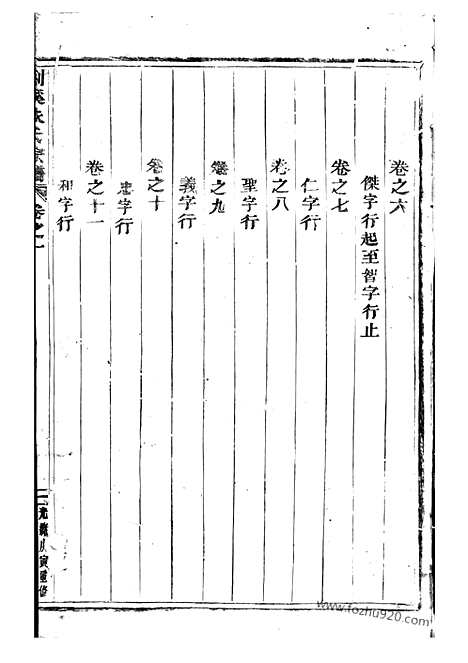 卷之六
傑字行起至智字行止
卷之七
仁字行
卷之八
聖字行
卷之九
義字行
卷之十
忠字行
卷之十一
和字行
氏宗譜
卷之一
光緒戊寅重修
www.fozhu920.com